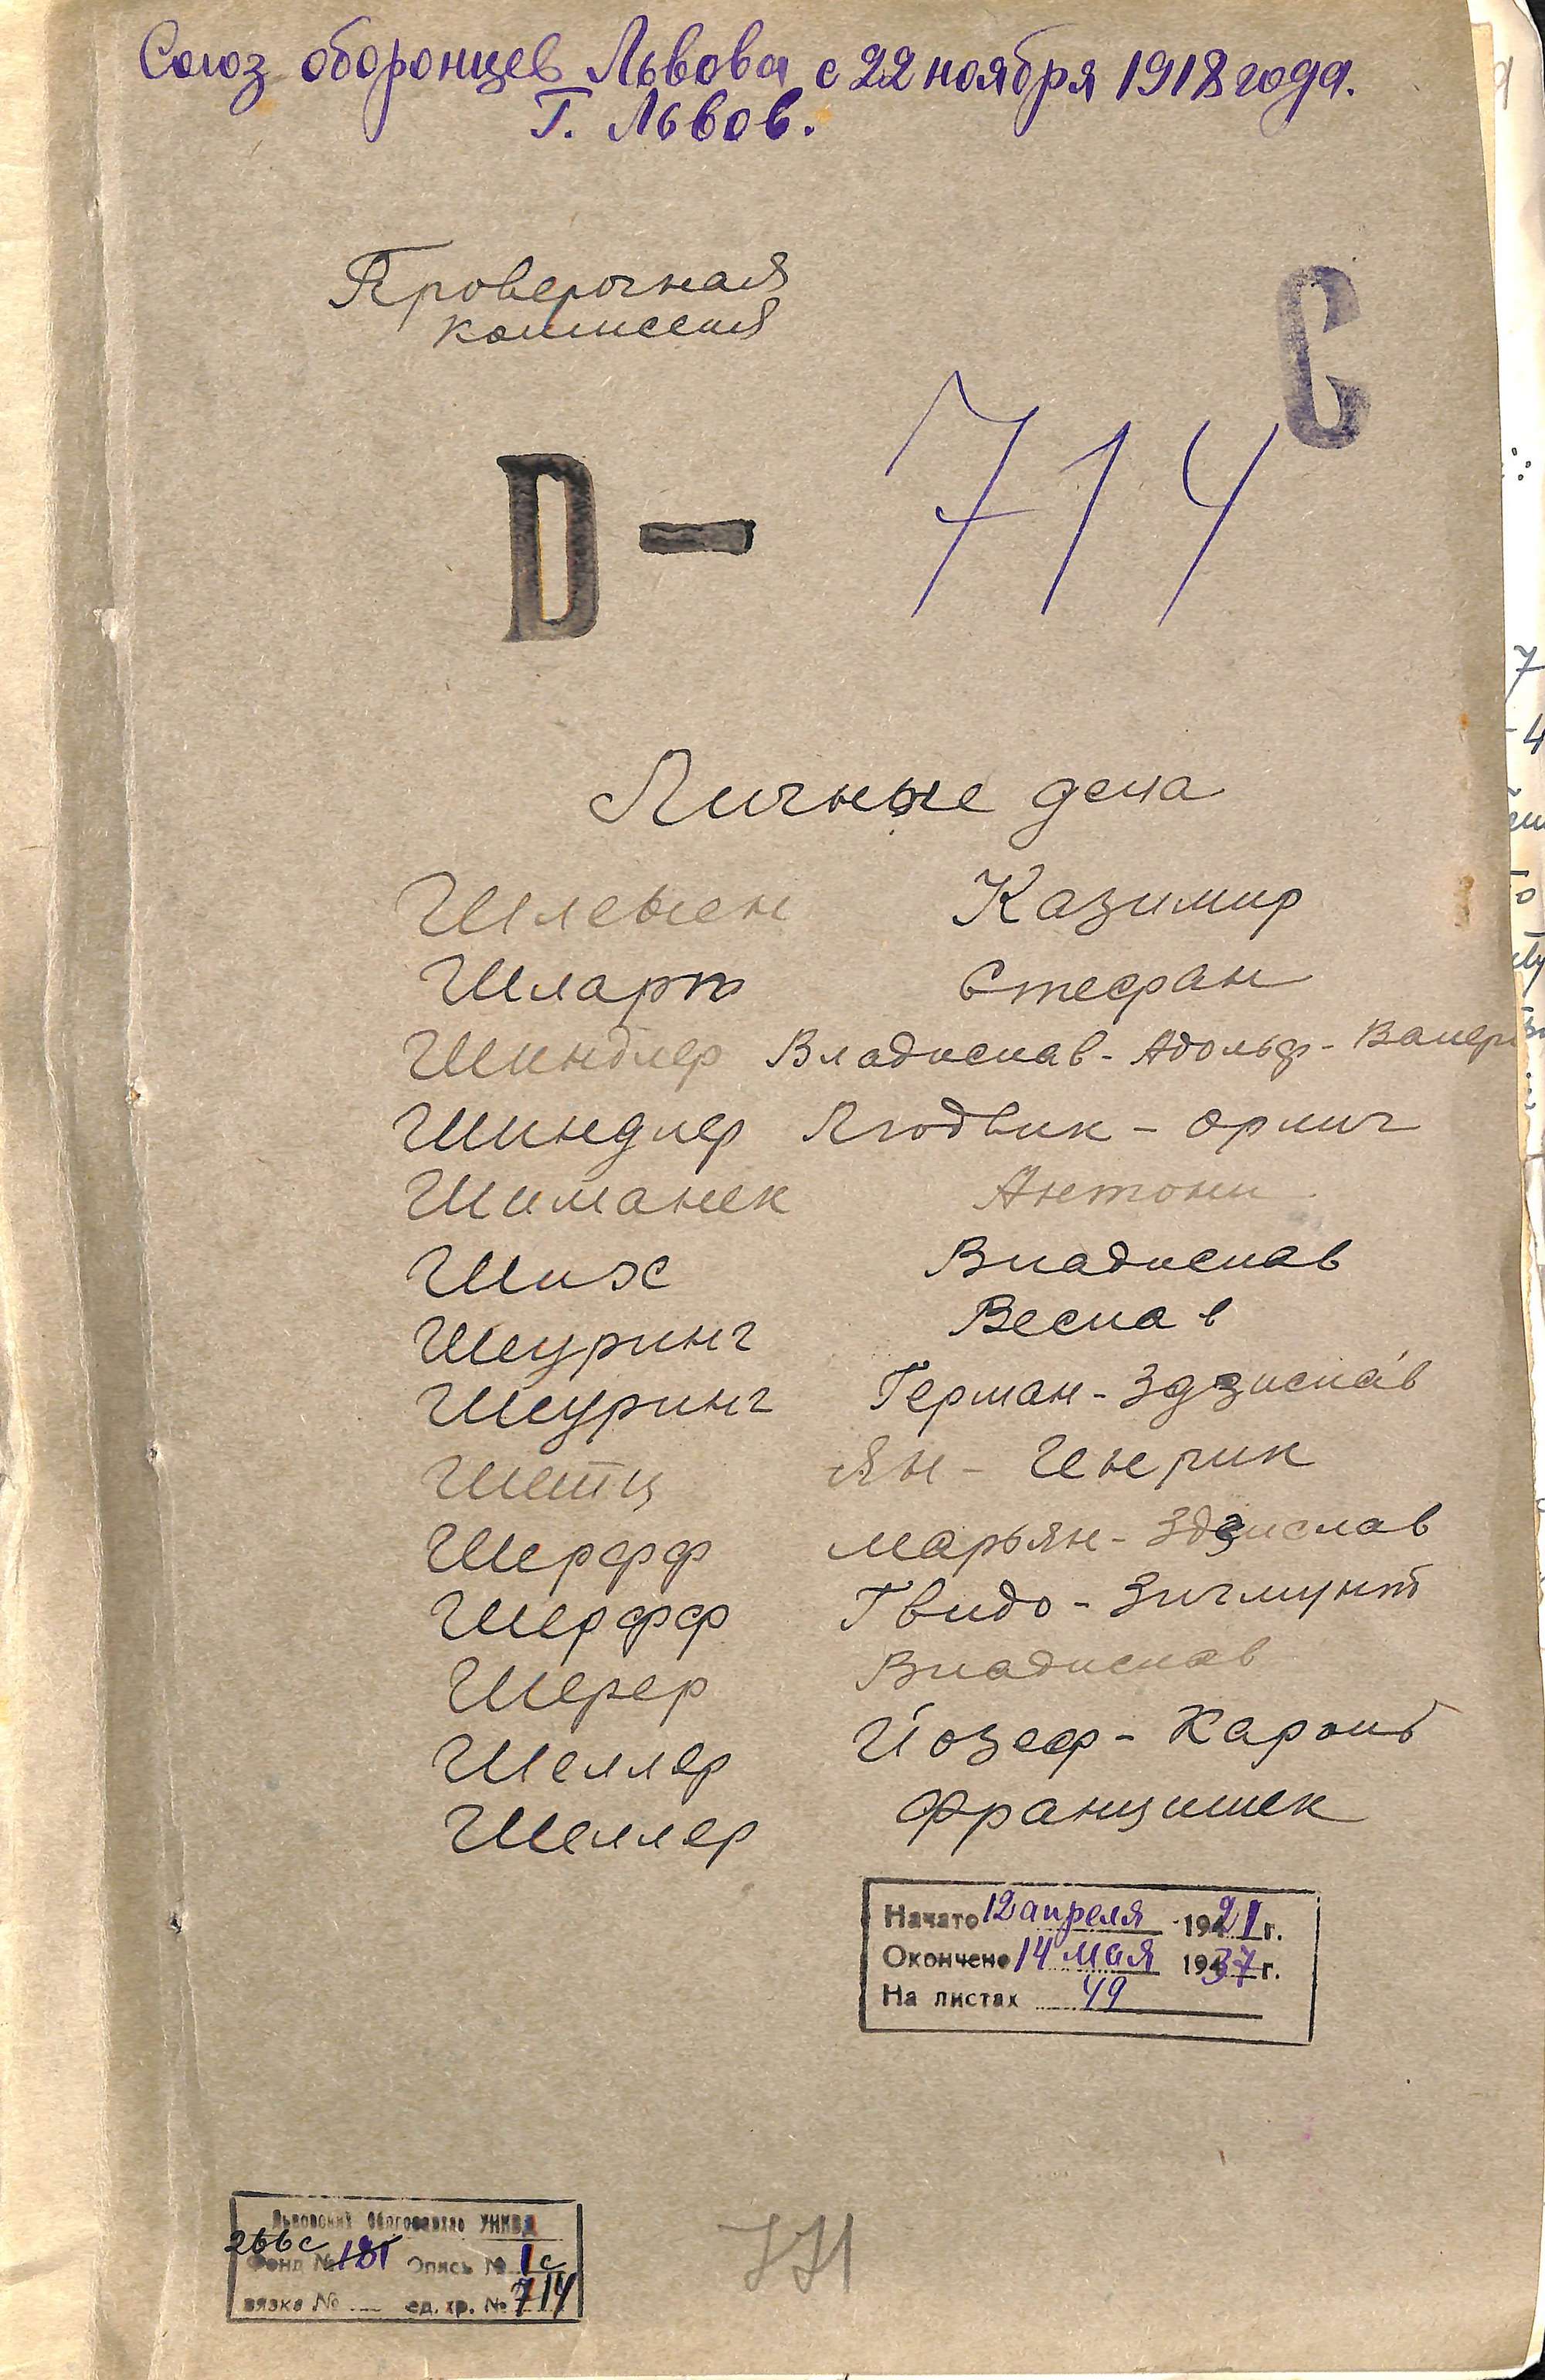 Союз оборонцев Львова с 22 ноября 1918 года.
Г. Львов.
Проверочная
комиссия
С
D — 714
Личные дела
Шлеыен Казимир
Шларп Стефан
Шиндлер Владислав - Адольф - Валери
Шиндлер Людвик - Орлич
Шиманек Антони
Ших Владислав
Шеуринг Веслав
Шеуринг Герман - Здзислав
Шетц Ян - Генрик
Шерфф Марьян - Здзислав
Шерфф Гвидо - Зигмунт
Шерер Владислав
Шеллер Йозеф - Кароль
Шеллер Францишек
Начато 12 апреля 1921 г.
Окончено 14 мая 1937 г.
На листах 49
Львовский Облгосархив УНКВД
266с
Фонд № 181 Опись № 1с
вязка № ед. хр. № 714